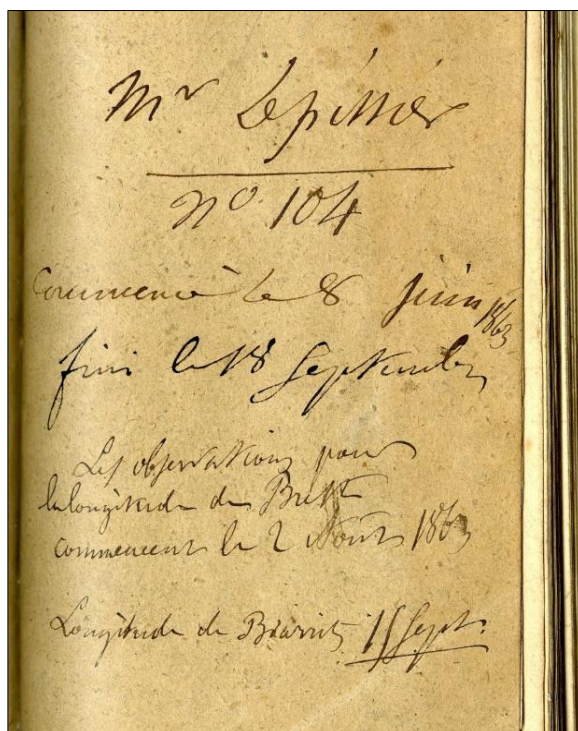 Mr Lépissier
No. 104
Commencé le 8 juin 1863
fini le 18 Septembre
Les observations pour
la longitude de Brest
commencent le 2 Août 1863
Longitude de Biarritz 15 Sept.